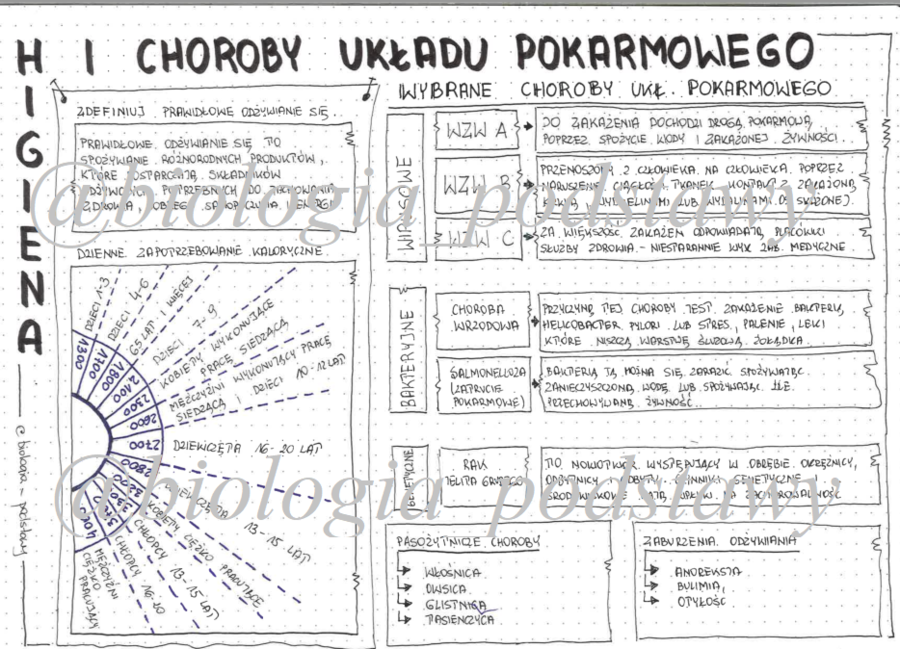 HIGIENA
I CHOROBY UKŁADU POKARMOWEGO
ZDEFINIUJ PRAWIDŁOWE ODŻYWIANIE SIĘ
PRAWIDŁOWE ODŻYWIANIE SIĘ TO
SPOŻYWANIE RÓŻNORODNYCH PRODUKTÓW,
KTÓRE DOSTARCZAJĄ SKŁADNIKÓW
ODŻYWCZYCH POTRZEBNYCH DO ZACHOWANIA
ZDROWIA, DOBREGO SAMOPOCZUCIA I ENERGII
DZIENNE ZAPOTRZEBOWANIE KALORYCZNE
1300 DZIECI 1-3
1700 DZIECI 4-6
1800 65 LAT I WIĘCEJ
2100 DZIECI 7-9
2300 KOBIETY WYKONUJĄCE
PRACĘ SIEDZĄCĄ
2600 MĘŻCZYŹNI WYKONUJĄCY PRACĘ
SIEDZĄCĄ I DZIECI 10-12 LAT
2700 DZIEWCZĘTA 16-20 LAT
2800 DZIEWCZĘTA 13-15 LAT
KOBIETY CIĘŻKO PRACUJĄCE
CHŁOPCY 13-15 LAT
CHŁOPCY 16-20
MĘŻCZYŹNI
CIĘŻKO
PRACUJĄCY
@biologia_podstawy
WYBRANE CHOROBY UKŁ. POKARMOWEGO
WIRUSOWE
WZW A
DO ZAKAŻENIA DOCHODZI DROGĄ POKARMOWĄ,
POPRZEZ SPOŻYCIE WODY I ZAKAŻONEJ ŻYWNOŚCI.
WZW B
PRZENOSZONY Z CZŁOWIEKA NA CZŁOWIEKA POPRZEZ
NARUSZENIE CIĄGŁOŚCI TKANEK, KONTAKT Z ZAKAŻONĄ
KRWIĄ I WYDZIELINAMI LUB WYDALINAMI
WZW C
ZA WIĘKSZOŚĆ ZAKAŻEŃ ODPOWIADAJĄ PLACÓWKI
SŁUŻBY ZDROWIA - NIESTARANNIE WYK. ZAB. MEDYCZNE.
BAKTERYJNE
CHOROBA
WRZODOWA
PRZYCZYNĄ TEJ CHOROBY JEST ZAKAŻENIE BAKTERIĄ
HELICOBACTER PYLORI LUB STRES, PALENIE, LEKI
KTÓRE NISZCZĄ WARSTWĘ ŚLUZOWĄ ŻOŁĄDKA.
SALMONELLOZA
(ZATRUCIE
POKARMOWE)
BAKTERIĄ TĄ MOŻNA SIĘ ZARAZIĆ SPOŻYWAJĄC
ZANIECZYSZCZONĄ WODĘ LUB SPOŻYWAJĄC ŹLE
PRZECHOWYWANĄ ŻYWNOŚĆ.
GENETYCZNE
RAK
JELITA GRUBEGO
TO NOWOTWÓR WYSTĘPUJĄCY W OBRĘBIE OKRĘŻNICY,
ODBYTNICY I ODBYTU. CZYNNIKI GENETYCZNE I
ŚRODOWISKOWE MAJĄ WPŁYW NA ZACHOROWALNOŚĆ
PASOŻYTNICZE CHOROBY
WŁOŚNICA
OWSICA
GLISTNICA
TASIEMCZYCA
ZABURZENIA ODŻYWIANIA
ANOREKSJA
BULIMIA,
OTYŁOŚĆ
@biologia_podstawy
@biologia_podstawy